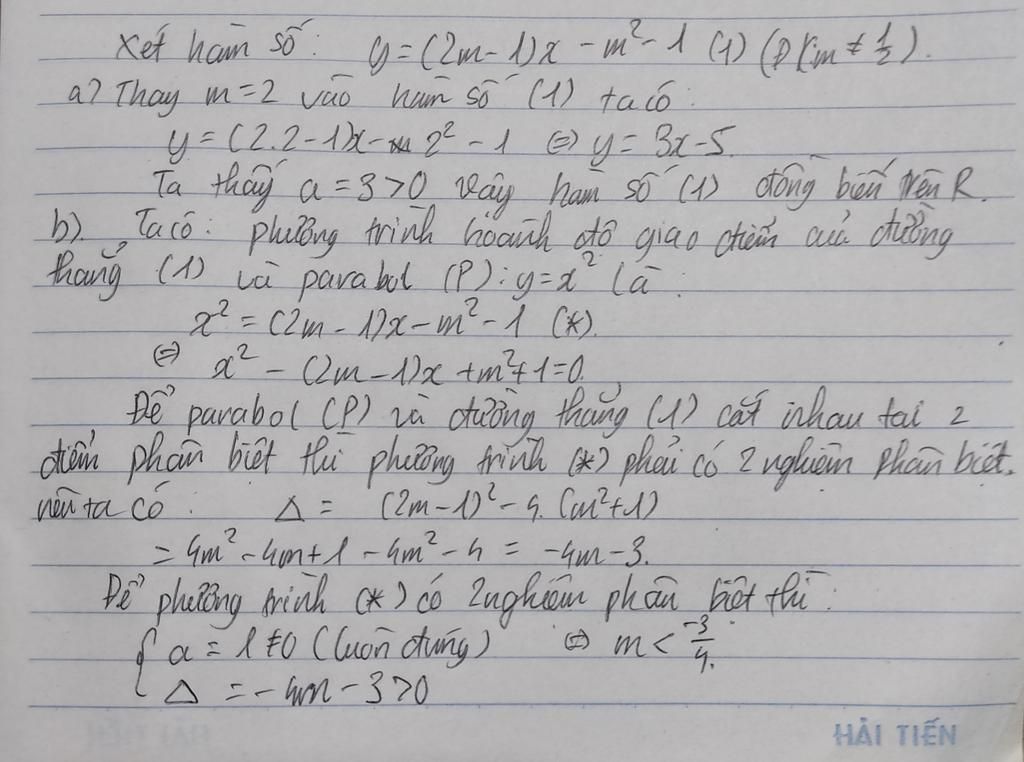 Xét hàm số: y=(2m-1)x-m²-1 (1) (Đk:m≠1/2).
a) Thay m=2 vào hàm số (1) ta có:
y=(2.2-1)x-2²-1 ⇔ y=3x-5.
Ta thấy a=3>0 vậy hàm số (1) đồng biến trên R.
b). Ta có: phương trình hoành độ giao điểm của đường
thẳng (1) và parabol (P): y=x² là:
x²=(2m-1)x-m²-1 (*).
⇔ x²-(2m-1)x+m²+1=0.
Để parabol (P) và đường thẳng (1) cắt nhau tại 2
điểm phân biệt thì phương trình (*) phải có 2 nghiệm phân biệt.
nên ta có: Δ= (2m-1)²-4.(m²+1)
=4m²-4m+1-4m²-4 = -4m-3.
Để phương trình (*) có 2 nghiệm phân biệt thì:
{ a=1≠0 (luôn đúng) ⇔ m< -3/4.
Δ=-4m-3>0
HẢI TIẾN